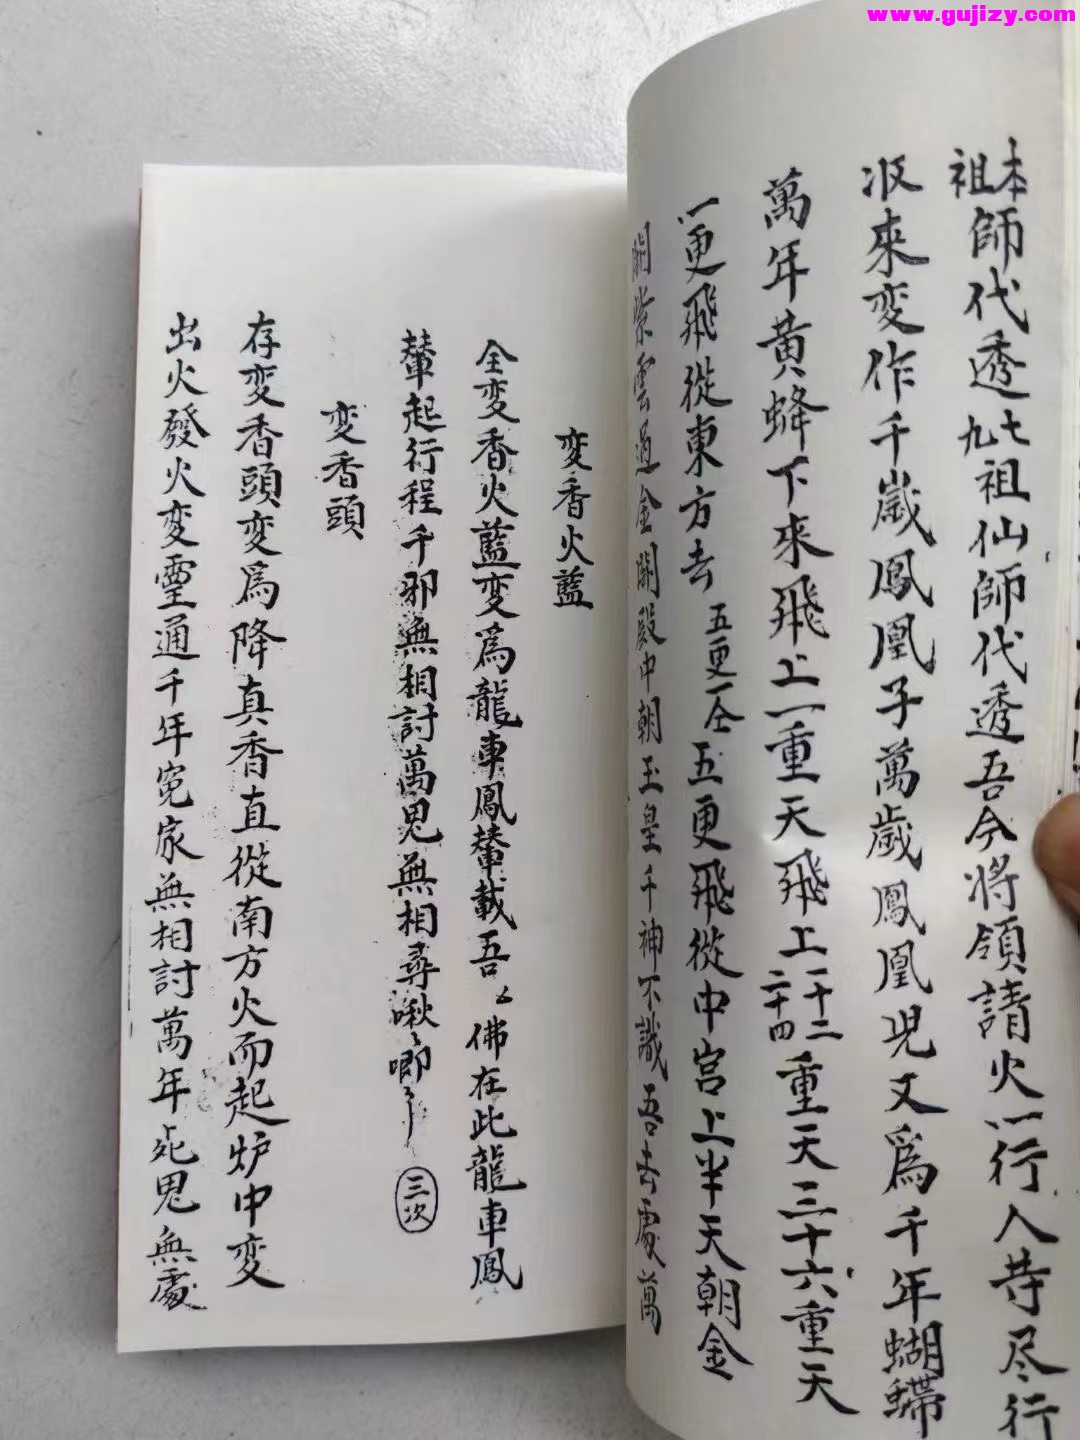 www.gujizy.com
本祖師代透七九祖仙師代透吾今將領請火一行人䒭尽行
収來変作千歲鳳凰子萬歲鳳凰児又為千年蝴蝶
萬年黄蜂下來飛上一重天飛上一十二二十四重天三十六重天
一更飛從東方去五更一仝五更飛從中宫上半天朝金
闕紫雲過金闕殿中朝玉皇千神不識吾去處萬
変香火藍
仝変香火藍変為龍車鳳輦載吾〻佛在此龍車鳳
輦起行程千邪無相討萬鬼無相尋啾〻唧〻三次
変香頭
存変香頭変為降真香直從南方火而起炉中変
出火發火変靈通千年寃家無相討萬年死鬼無處